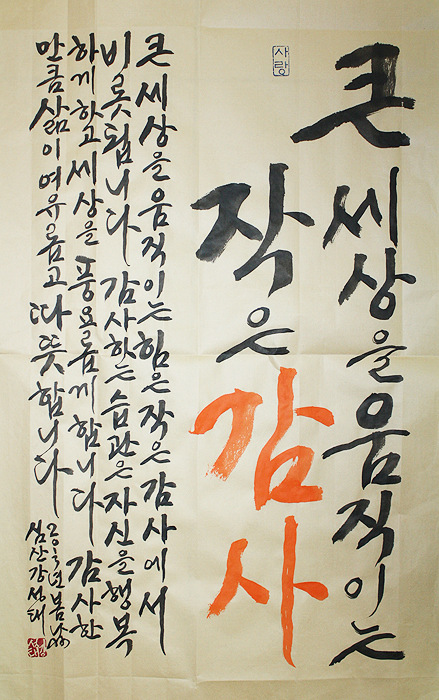 사랑
큰 세상을 움직이는
작은 감사
큰 세상을 움직이는 힘은 작은 감사에서
비롯됩니다 감사하는 습관은 자신을 행복
하게 하고 세상을 풍요롭게 합니다 감사한
만큼 삶이 여유롭고 따뜻합니다
심산 강성태